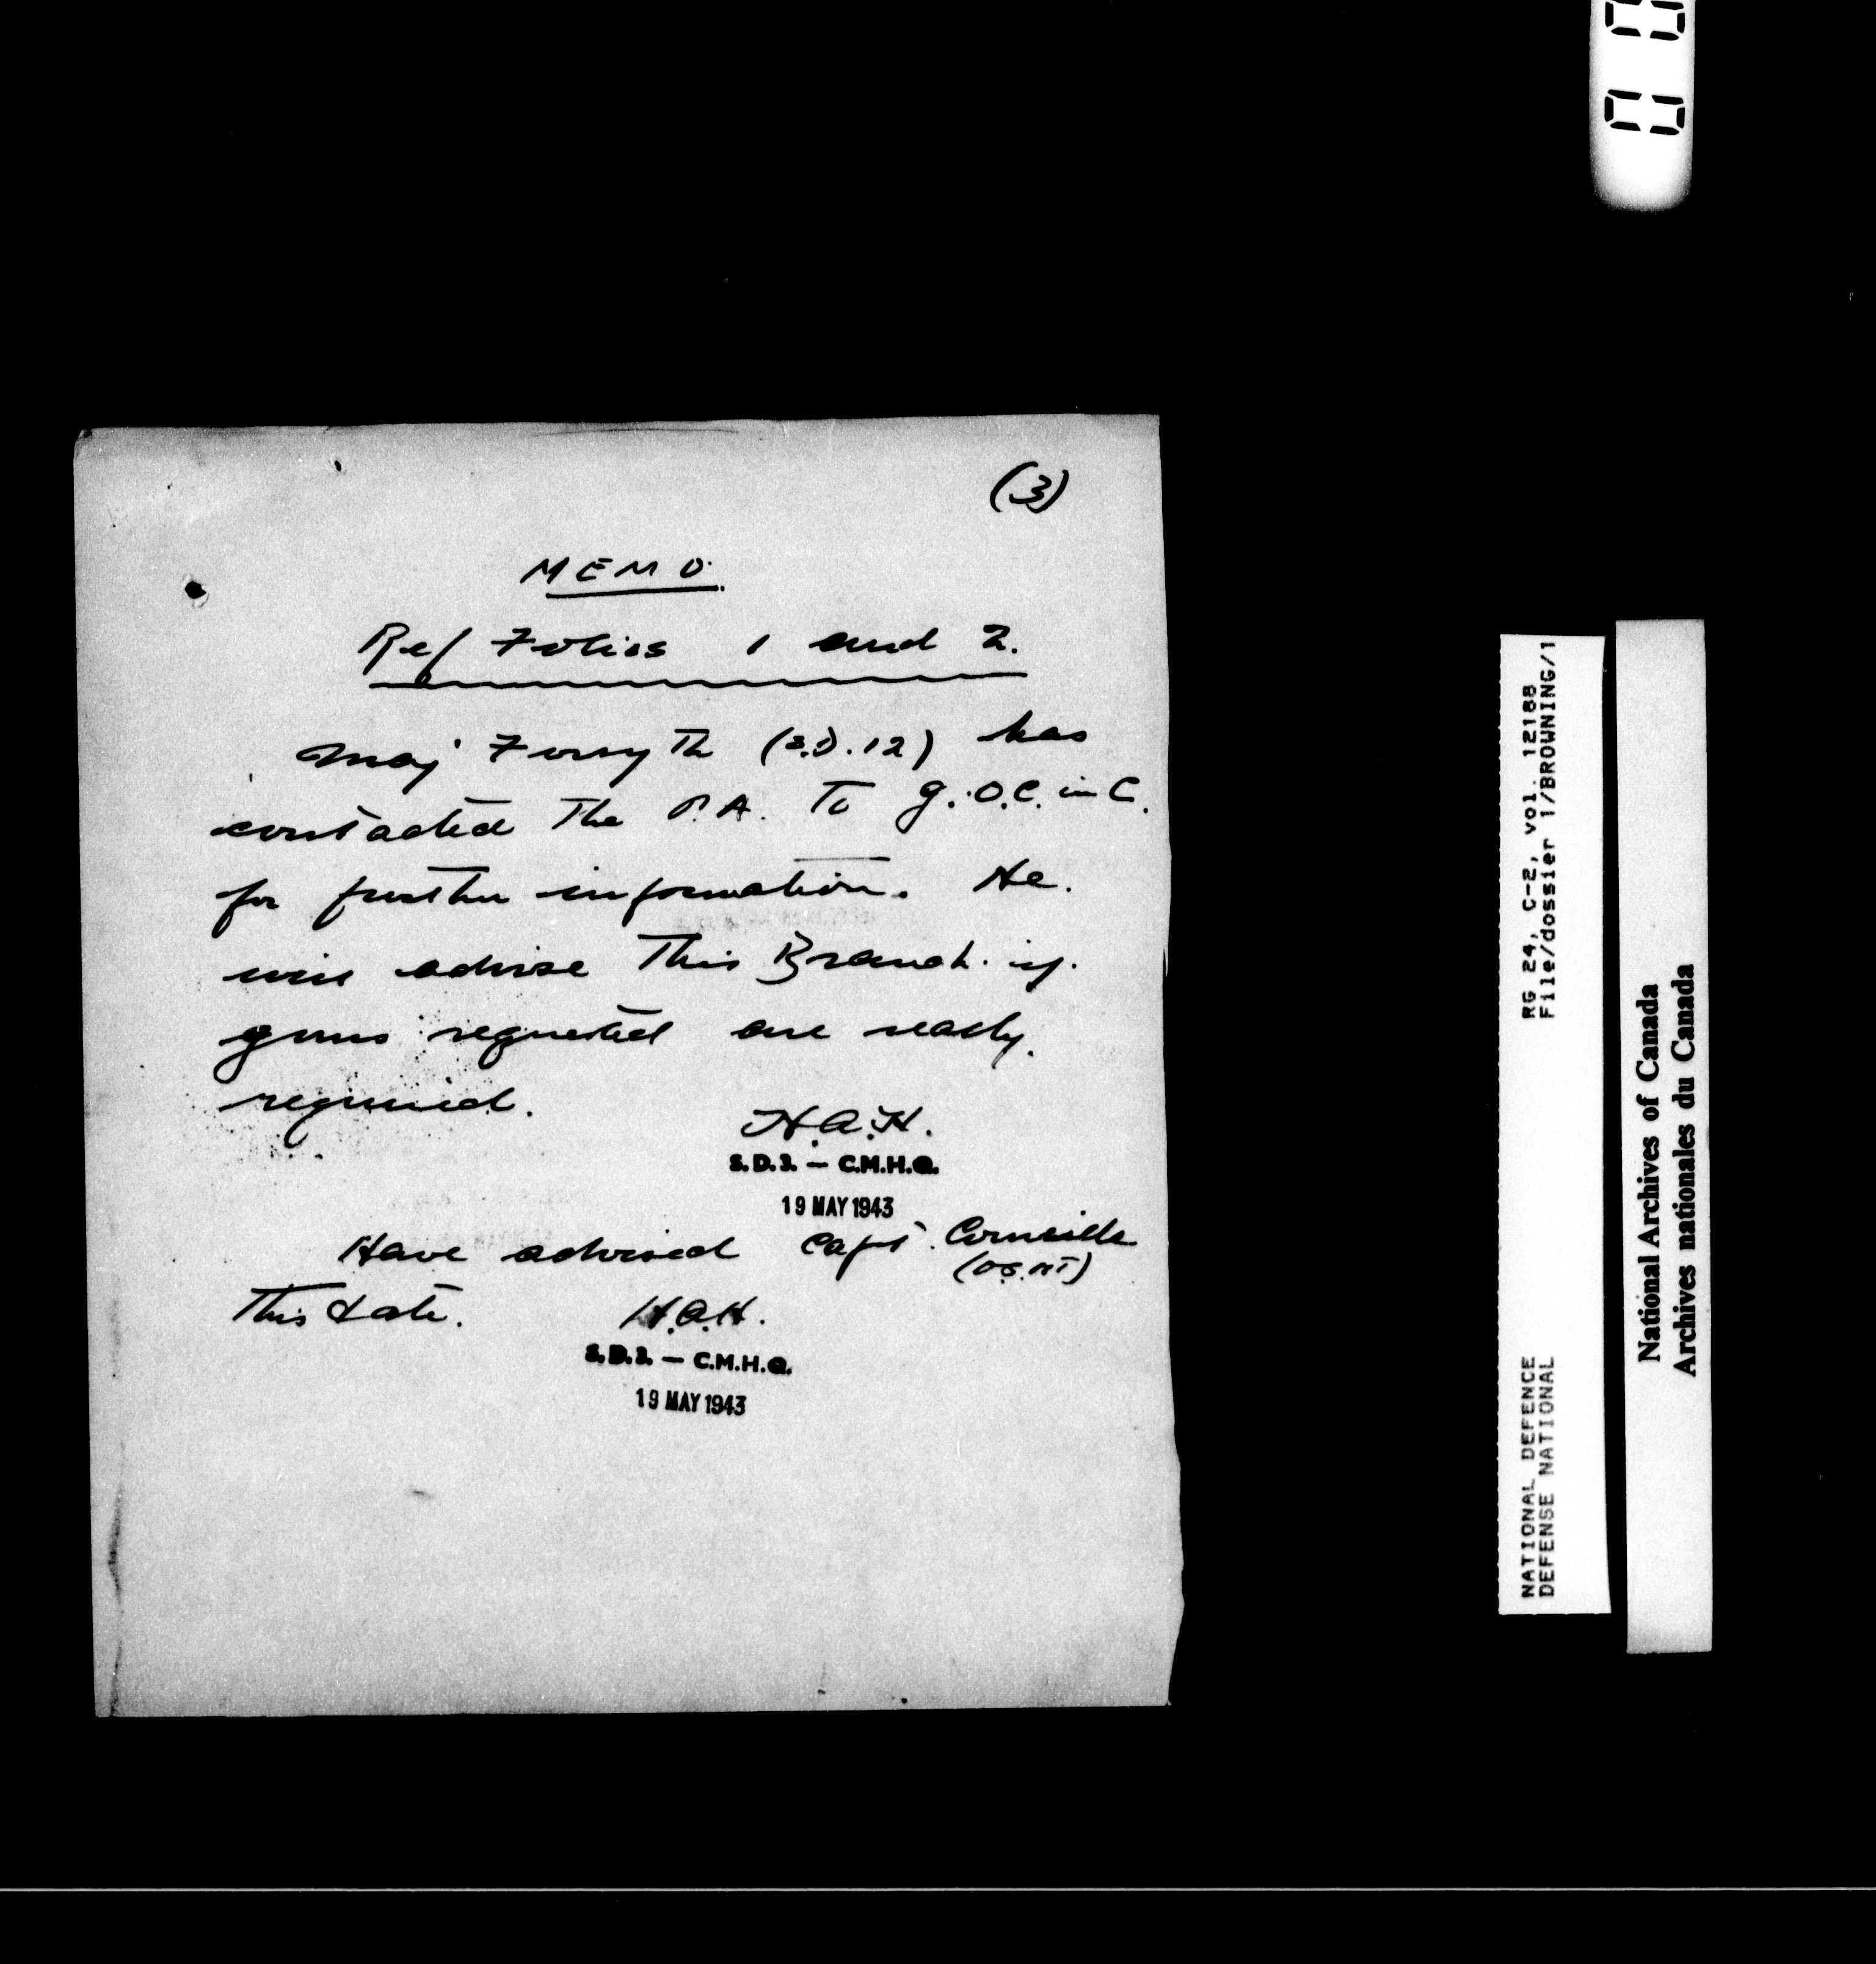 (3)
MEMO.
Ref Folios 1 and 2.
Maj Forsyth (S.D.12) has
contacted the P.A. To G.O.C. in C.
for further information. He.
will advise This Branch. if.
guns requested are really.
required.
H.A.H.
S.D.3. — C.M.H.Q.
19 MAY 1943
Have advised Capt. Corneille
This date.
H.A.H.
S.D.3. — C.M.H.Q.
19 MAY 1943
RG 24, C-2, vol. 12188
File/dossier 1/BROWNING/1
NATIONAL DEFENCE
DEFENSE NATIONAL
National Archives of Canada
Archives nationales du Canada